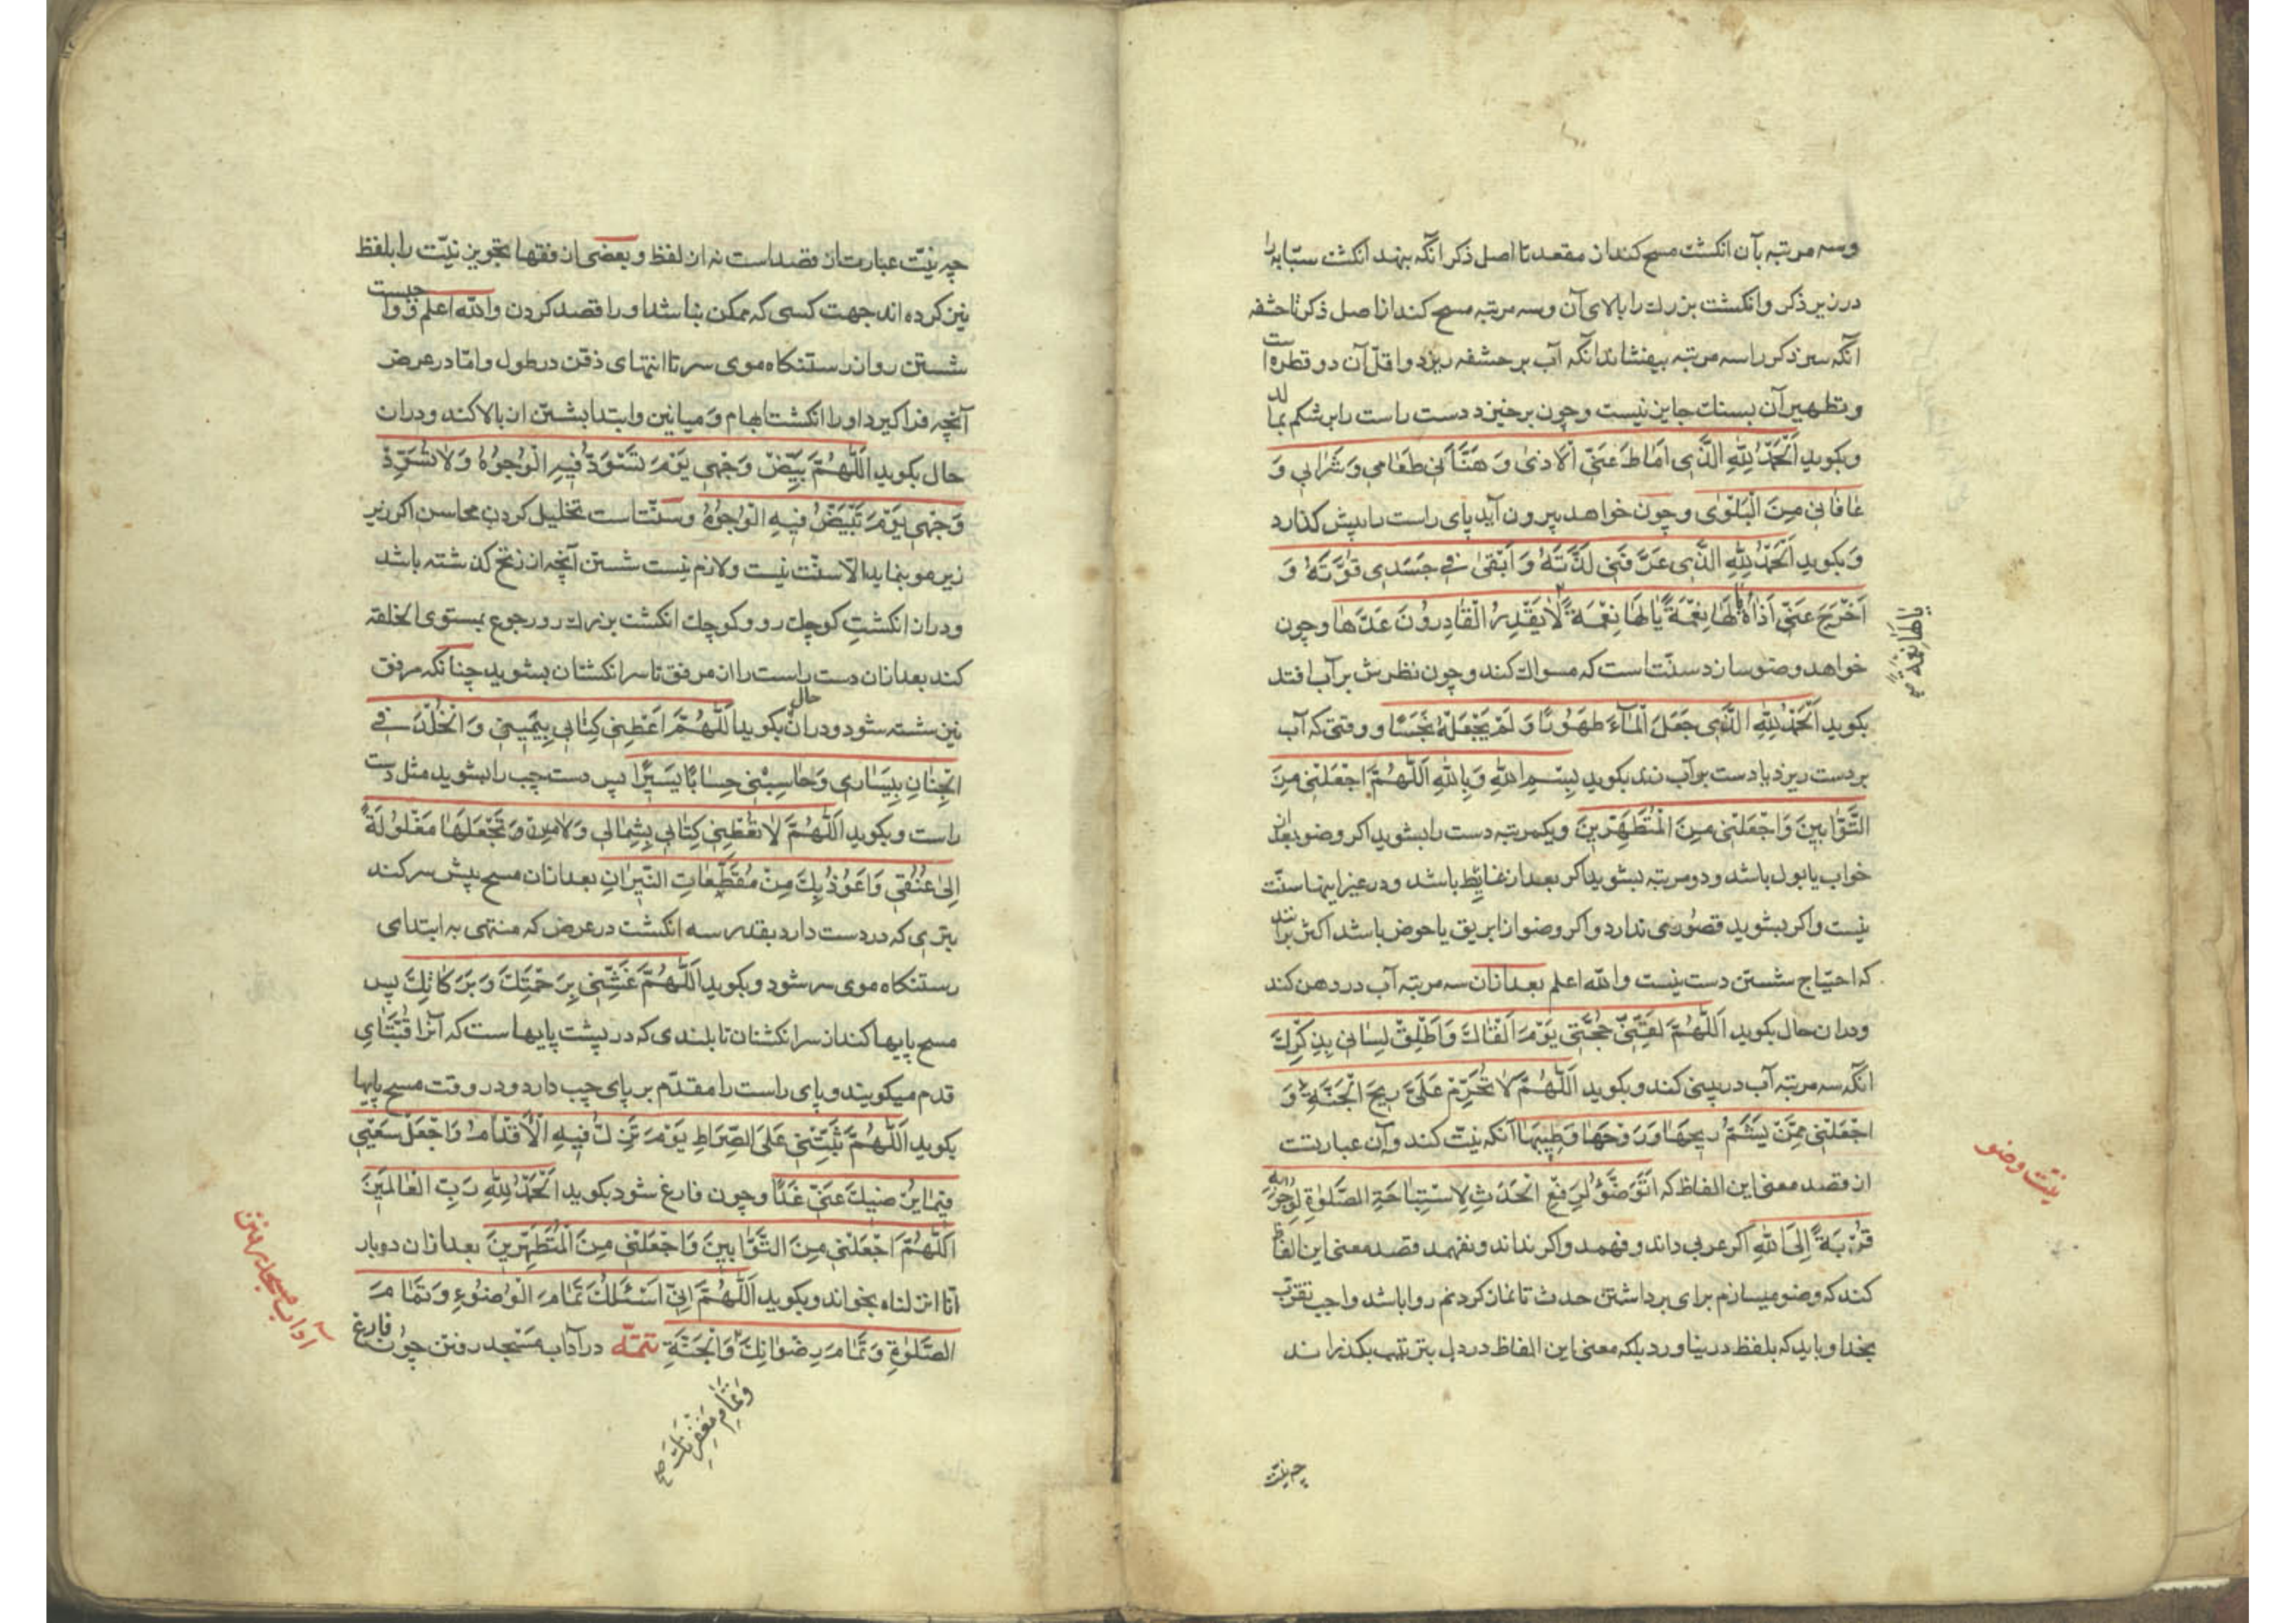 وسه مرتبه بآن انکشت مسح کند از مقعد تا اصل ذکر انکه بنهد انکشت سبّابه را
در زیر ذکر و انکشت بزرك را بالای آن وسه مرتبه مسح کند از اصل ذکر تا حشفه
انکه سر ذکر را سه مرتبه بیفشاند انکه آب بر حشفه ریزد و اقلّ آن دو قطره است
و تطهیر آن بسنك جایز نیست و چون بر خیزد دست راست را بر شکم بمالد
و بکوید اَلْحَمْدُ لِلّٰهِ الَّذِی اَمَاطَ عَنِّی الْاَذیٰ وَ هَنَّأَنِی طَعَامِی وَ شَرَابِی وَ
عَافَانِی مِنَ الْبَلْوٰی و چون خواهد بیرون آید پای راست را پیش کذارد
وَ بکوید اَلْحَمْدُ لِلّٰهِ الَّذِی عَرَّفَنِی لَذَّتَهُ وَ اَبْقیٰ فِی جَسَدِی قُوَّتَهُ وَ
اَخْرَجَ عَنِّی اَذَاهُ یَا لَهَا نِعْمَةً یَا لَهَا نِعْمَةً لَا یَقْدِرُ الْقَادِرُونَ قَدْرَهَا و چون
یَا لَهَا نِعْمَةً صح
خواهد وضو سازد سنّتاست که مسواك کند و چون نظرش بر آب افتد
بکوید اَلْحَمْدُ لِلّٰهِ الَّذِی جَعَلَ الْمَآءَ طَهُورًا وَ لَمْ یَجْعَلْهُ نَجَسًا و وقتی که آب
بر دست ریزد یا دست بر آب زند بکوید بِسْمِ اللّٰهِ وَ بِاللّٰهِ اَللّٰهُمَّ اجْعَلْنِی مِنَ
التَّوَّابِینَ وَ اجْعَلْنِی مِنَ الْمُتَطَهِّرِینَ و یکمرتبه دست را بشوید اکر وضو بعد از
خواب یا بول باشد و دو مرتبه بشوید اکر بعد از غایط باشد و در غیر اینها سنّت
نیست و اکر بشوید قصوری ندارد و اکر وضو از ابریق یا حوض باشد اکثر برآنند
که احتیاج شستن دست نیست والله اعلم بعد ازان سه مرتبه آب در دهن کند
و دران حال بکوید اَللّٰهُمَّ لَقِّنِّی حُجَّتِی یَوْمَ اَلْقَاكَ وَ اَطْلِقْ لِسَانِی بِذِکْرِكَ
انکه سه مرتبه آب در بینی کند و بکوید اَللّٰهُمَّ لَا تُحَرِّمْ عَلَیَّ رِیحَ الْجَنَّةِ وَ
اجْعَلْنِی مِمَّنْ یَشَمُّ رِیحَهَا وَ رَوْحَهَا وَ طِیبَهَا آنکه نیّت کند و آن عبارتست
نیّت وضو
از قصد معنی این الفاظ که اَتَوَضَّؤُ لِرَفْعِ الْحَدَثِ لِاسْتِبَاحَةِ الصَّلٰوةِ لِوُجُوبِهِ
قُرْبَةً اِلَی اللّٰهِ اکر عربی داند و فهمد و اکر نداند و نفهمد قصد معنی این الفاظ
کند که وضو میسازم برای برداشتن حدث تا نماز کردنم روا باشد واجب تقرّب
بخدا و باید که بلفظ در نیاورد بلکه معنی این الفاظ در دل بترتیب بکذراند
چه نیّت
چه نیّت عبارت از قصد است نه از لفظ و بعضی از فقها تجویز نیّت را بلفظ
نیز کرده اند جهت کسی که ممکن نباشد او را قصد کردن والله اعلم و واجبست
شستن رو از رستنکاه موی سر تا انتهای ذقن در طول و امّا در عرض
آنچه فرا کیرد او را انکشت ابهام و میانین و ابتدا بشستن از بالا کند و دران
حال بکوید اَللّٰهُمَّ بَیِّضْ وَجْهِی یَوْمَ تَسْوَدُّ فِیهِ الْوُجُوهُ وَ لَا تُسَوِّدْ
وَجْهِی یَوْمَ تَبْیَضُّ فِیهِ الْوُجُوهُ و سنّتاست تخلیل کردن محاسن اکر زیر
زیر مو بنماید الّا سنّت نیست و لازم نیست شستن آنچه از زنخ کذشته باشد
و دراز انکشتِ کوچك رو و کوچك انکشت بزرك رو رجوع بمستوی الخلقه
کند بعد ازان دست راست را از مرفق تا سر انکشتان بشوید چنانکه مرفق
نیز شسته شود و دران حال بکوید اَللّٰهُمَّ اَعْطِنِی کِتَابِی بِیَمِینِی وَ الْخُلْدَ فِی
الْجِنَانِ بِیَسَارِی وَ حَاسِبْنِی حِسَابًا یَسِیرًا پس دست چپ را بشوید مثل دست
راست و بکوید اَللّٰهُمَّ لَا تُعْطِنِی کِتَابِی بِشِمَالِی وَ لَا مِنْ وَ تَجْعَلَهَا مَغْلُولَةً
اِلیٰ عُنُقِی وَ اَعُوذُ بِكَ مِنْ مُقَطَّعَاتِ النِّیرَانِ بعد ازان مسح پیش سر کند
بتری که در دست دارد بقدر سه انکشت در عرض که منتهی به ابتدای
رستنکاه موی سر شود و بکوید اَللّٰهُمَّ غَشِّنِی بِرَحْمَتِكَ وَ بَرَکَاتِكَ پس
مسح پایها کند از سر انکشتان تا بلندی که در پشت پایهاست که آنرا قُبّتای
قدم میکویند و پای راست را مقدّم بر پای چپ دارد و در وقت مسح پایها
بکوید اَللّٰهُمَّ ثَبِّتْنِی عَلَی الصِّرَاطِ یَوْمَ تَزِلُّ فِیهِ الْاَقْدَامُ وَ اجْعَلْ سَعْیِی
فِیمَا یُرْضِیكَ عَنِّی غَدًا و چون فارغ شود بکوید اَلْحَمْدُ لِلّٰهِ رَبِّ الْعَالَمِینَ
اَللّٰهُمَّ اجْعَلْنِی مِنَ التَّوَّابِینَ وَ اجْعَلْنِی مِنَ الْمُتَطَهِّرِینَ بعد ازان دو بار
انّا انزلناه بخواند و بکوید اَللّٰهُمَّ اِنِّی اَسْئَلُكَ تَمَامَ الْوُضُوءِ وَ تَمَامَ
الصَّلٰوةِ وَ تَمَامَ رِضْوَانِكَ وَ الْجَنَّةِ تتمّه در آداب مسجد رفتن چون فارغ
وَ تَمَامِ مَغْفِرَتِكَ صح
آداب مسجد رفتن